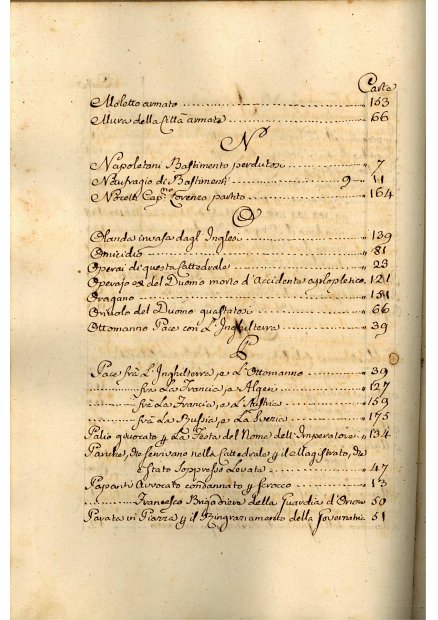 Carta
Moletto armato 153
Mura della Città armate 66
N
Napoletani Bastimento perduto 7
Naufragio di Bastimenti 9 11
Novelli Cap.no Lorenzo partito 164
O
Olanda invasa dagl'Inglesi 139
Omicidio 81
Operai di questa Cattedrale 23
Operajo del Duomo morto d'Accidente aplopletico 121
Oragano 151
Orivolo del Duomo guastatosi 66
Ottomanno Pace con L'Inghilterra 39
P
Pace frà L'Inghilterra, e L'Ottomanno 39
frà La Francia, e Algeri 127
frà La Francia, e L'Austria 159
frà La Russia, e La Svezia 175
Palio giuocato La Festa del Nome dell'Imperatore 134
che servivano nella Cattedrale, il Magistrato, che
Stato Soppresso Levata 47
Avvocato condannato 13
Francesco Brigadiere della Guardia d'Onore 50
Parata in Piazza il Ringraziamento della 51